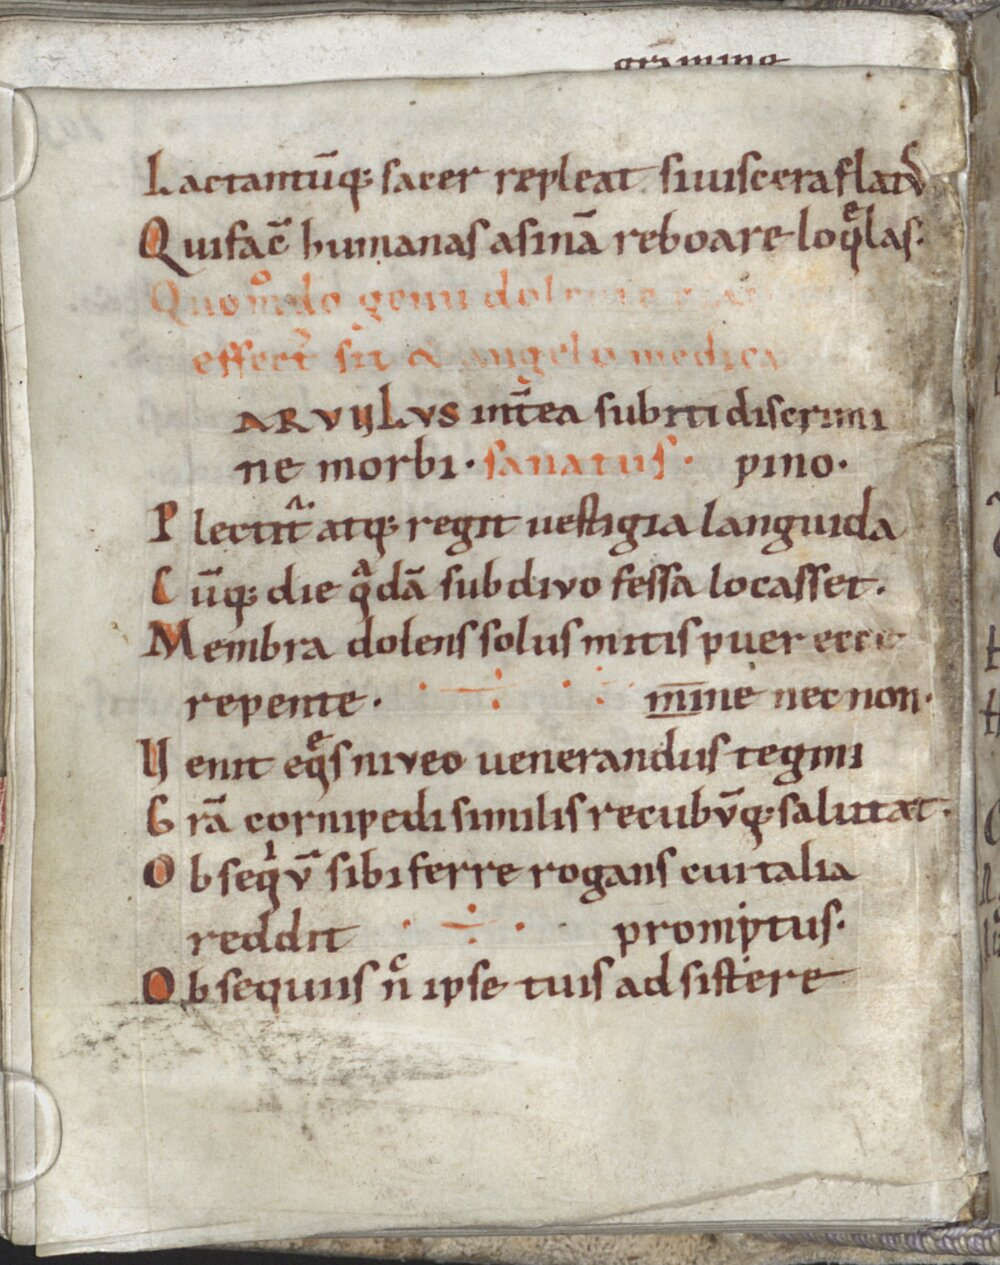 gramine
Lactantūq; sacer repleat si uiscera flatꝰ
Qui fac̄ humanas asinā reboare loq̄las.
Quom̊do genu dolen
effect᷒ sit & angelo medica
ARVULVS int̄ea subiti discrimi
ne morbi. sanatus. pino.
Plectit᷒ atq; regit uestigia languida
Cūq; die q̇dā sub divo fessa locasset.
Membra dolens solus mitis puer ecce
repente. m̄ine nec non.
Uenit eq̊s niveo uenerandus tegmi
Grā cornipedi similis recubv̄q; salutat.
Obseqv̄ sibi ferre rogans cui talia
reddit promptus.
Obsequiis n̊ ipse tuis adsistere